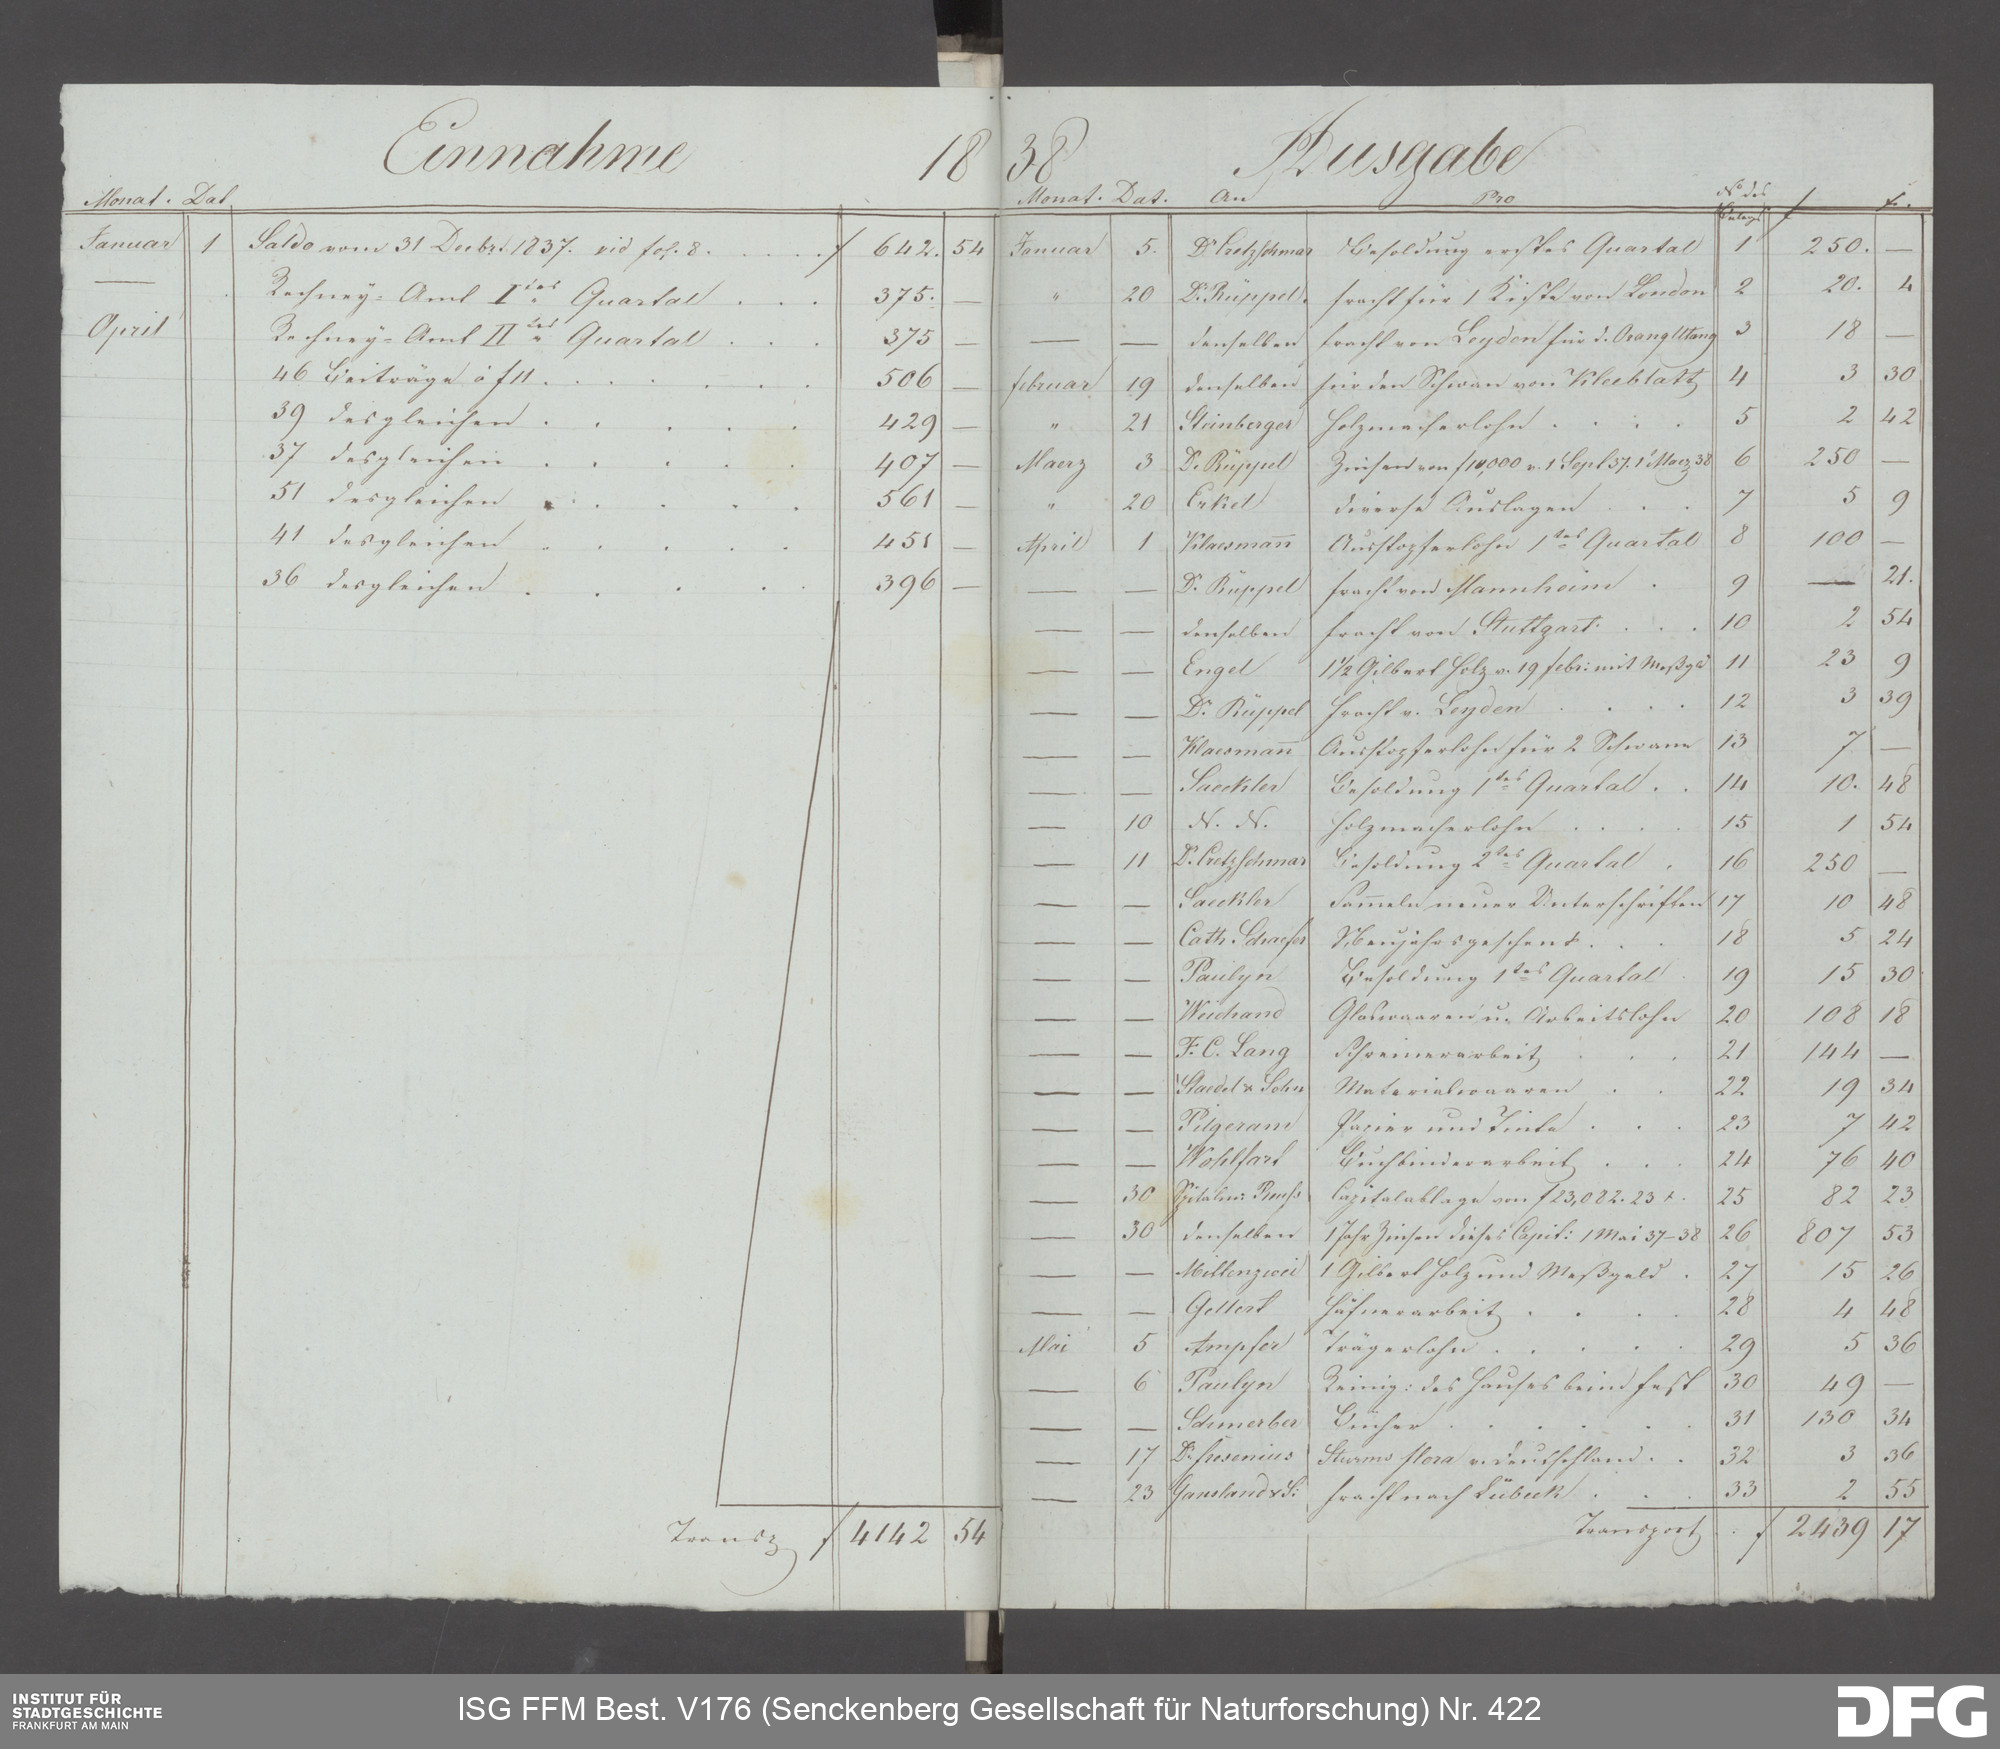 Einnahme 18
Monat. Dat.
Januar 1 Saldo vom 31 Decbr. 1837. vid fol. 8. . . . . f 642. 54
— Rechney-Amt Ites Quartal . . . 375. —
April Rechney-Amt IItes Quartal . . . 375 —
46 Beiträge á f 11 . . . . . . . 506 —
39 desgleichen . . . . . 429 —
37 desgleichen . . . . . 407 —
51 desgleichen . . . . . 561 —
41 desgleichen . . . . . 451 —
36 desgleichen . . . . . 396 —
Transp f 4142 54
38 Ausgabe
Monat. Dat. An Pro No des Belegs f x.
Januar 5. Dr Cretzschmar Besoldung erstes Quartal 1 250. —
" 20 Dr. Rüppel. Fracht für 1 Kiste von London 2 20. 4
— — denselben Fracht von Leyden für d. Orang Utang 3 18 —
Februar 19 denselben für den Schwan von Kleeblatt 4 3 30
" 21 Steinberger Holzmacherlohn . . . . 5 2 42
Maerz 3 Dr. Rüppel Zinsen von f 10,000 v. 1 Sept 37. 1 Maerz 38 6 250 —
" 20 Erkel diverse Auslagen . . . 7 5 9
April 1 Klaesmann Ausstopferlohn 1tes Quartal 8 100 —
— — Dr. Rüppel Fracht von Mannheim . 9 — 21.
— — denselben Fracht von Stuttgart. . . . 10 2 54
— — Engel 1 1/2 Gilbert Holz v. 19 Febr: mit Meßgd 11 23 9
— — Dr. Rüppel Fracht v. Leyden . . . . 12 3 39
— — Klaesmann Ausstopferlohn für 2 Schwane 13 7 —
— — Saeckler Besoldung 1tes Quartal . . 14 10. 48
— 10 N. N. Holzmacherlohn . . . . 15 1 54
— 11 Dr. Cretzschmar Besoldung 2tes Quartal . 16 250 —
— — Saeckler Sammeln neuer Unterschriften 17 10 48
— — Cath. Schaefer Neujahrsgeschenk . . . 18 5 24
— — Paulyn Besoldung 1tes Quartal . 19 15 30
— — Weichand Glaswaaren u. Arbeitslohn 20 108 18
— — F. C. Lang Schreinerarbeit . . . 21 144 —
— — Staedel & Sohn Materialwaaren . . 22 19 34
— — Pilgeram Papier und Tinte . . . 23 7 42
— — Wohlfart Buchbinderarbeit . . . 24 76 40
— 30 Spitalm: Reuss Capitalablage von f 23,082. 23 x. 25 82 23
— 30 denselben 1 Jahr Zinsen dieses Capit: 1 Mai 37–38 26 807 53
— — Mittenzwei 1 Gilbert Holz und Meßgeld . 27 15 26
— — Gellert Häfnerarbeit . . . . 28 4 48
Mai 5 Ampfer Trägerlohn . . . . . 29 5 36
— 6 Paulyn Reinig: des Hauses beim Fest 30 49 —
— — Schmerber Bücher . . . . . . 31 130 34
— 17 Dr. Fresenius Sturms Flora v. Deutschland . . 32 3 36
— 23 Gansland & S: Fracht nach Lübeck . . . 33 2 55
Transport . . f 2439 17
INSTITUT FÜR
STADTGESCHICHTE
FRANKFURT AM MAIN
ISG FFM Best. V176 (Senckenberg Gesellschaft für Naturforschung) Nr. 422
DFG